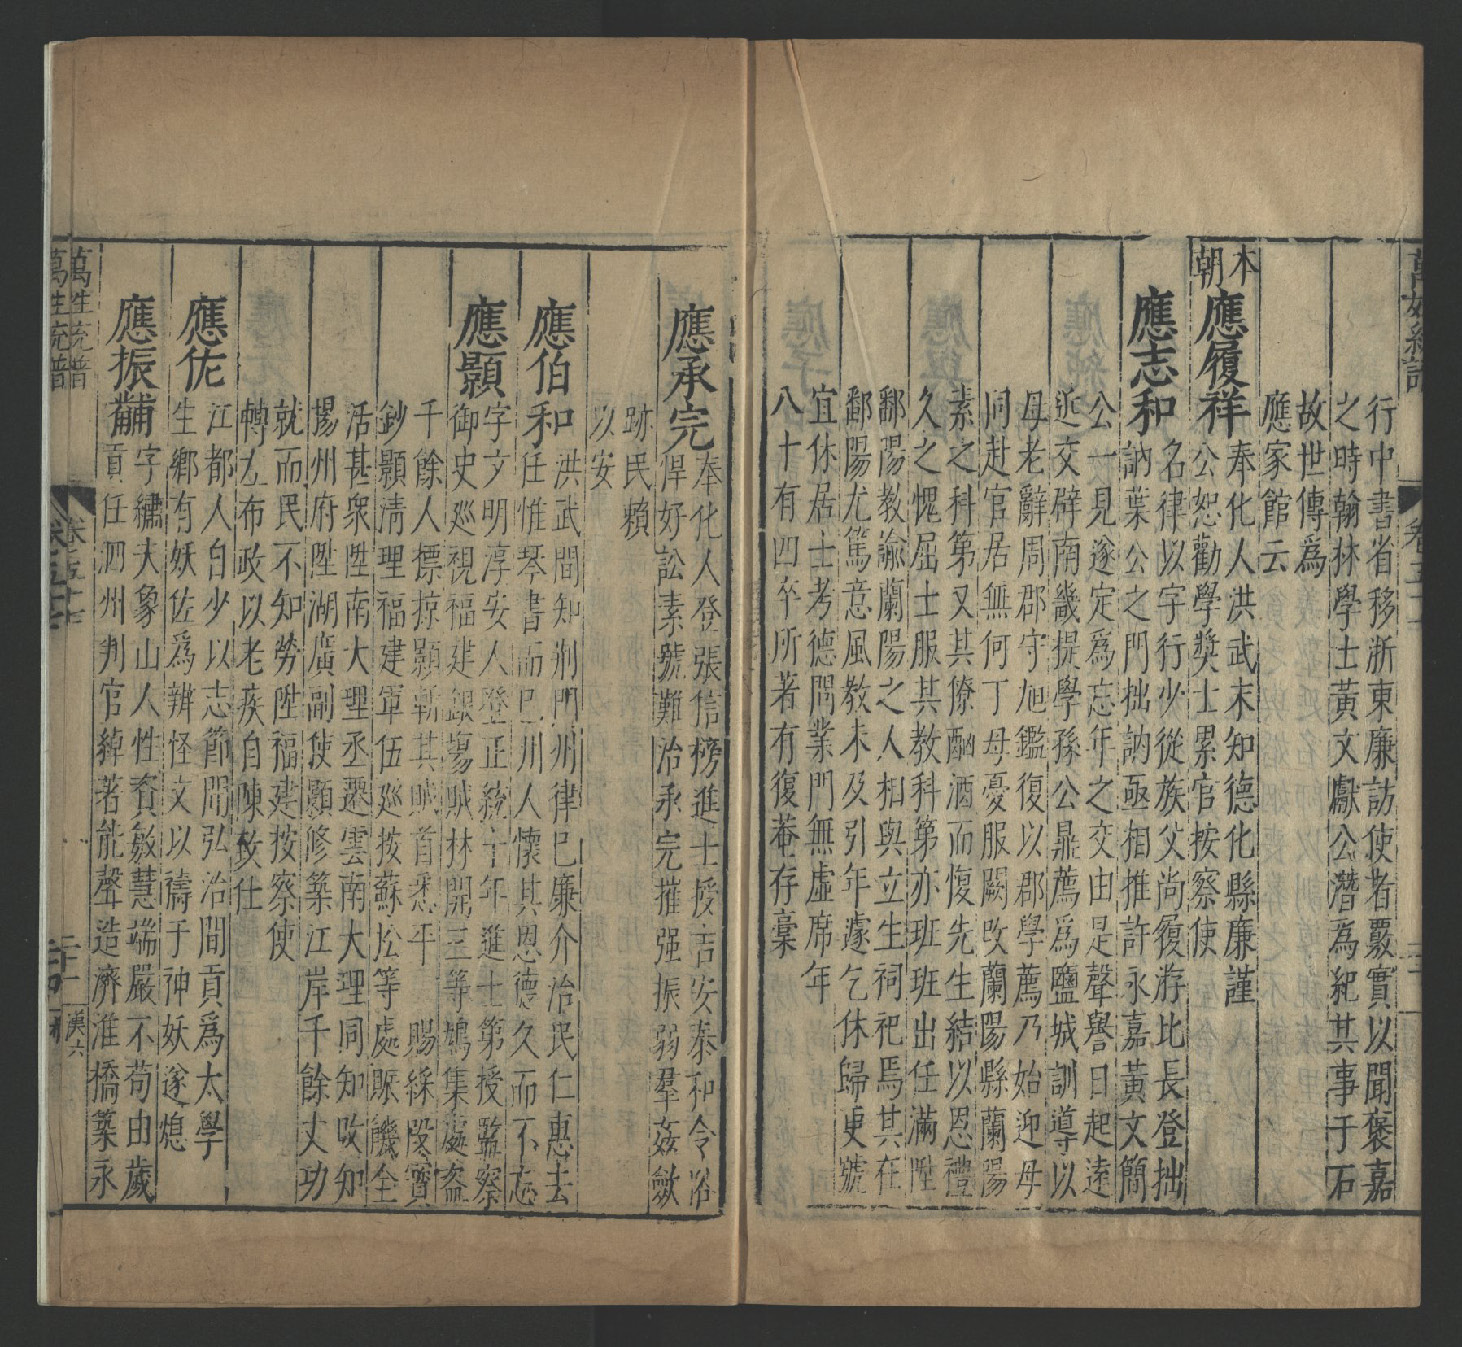 行中書省移浙東廉訪使者覈實以聞褒嘉
之時翰林學士黃文獻公潛爲紀其事于石
故世傳爲
應家館云
本朝
應履祥
奉化人洪武末知德化縣廉謹
公恕勸學獎士累官按察使
應志和
名律以字行少從族父尚履游比長登拙
訥葉公之門拙訥亟相推許永嘉黃文簡
公一見遂定爲忘年之交由是聲譽日起遠
近交辟南畿提學孫公鼎薦爲鹽城訓導以
母老辭周郡守旭鑑復以郡學薦乃始迎母
同赴官居無何丁母憂服闕改蘭陽縣蘭陽
素之科第又其僚酗酒而愎先生結以恩禮
久之愧屈士服其教科第亦班班出任滿陞
鄱陽教諭蘭陽之人相與立生祠祀焉其在
鄱陽尤篤意風教未及引年遽乞休歸更號
宜休居士考德問業門無虛席年
八十有四卒所著有復菴存稾
應承完
奉化人登張信榜進士授吉安泰和令俗
悍好訟素號難治承完摧强振弱羣姦斂
跡民賴
以安
應伯和
洪武間知荆門州律已廉介治民仁惠去
任惟琴書而已州人懷其恩德久而不忘
應顥
字文明淳安人登正統十年進士第授監察
御史廵視福建銀塲賊林開三等鳩集處盗
千餘人慓掠顥斬其賊首悉平 賜綵叚寳
鈔顥清理福建軍伍廵按蘇松等處賑饑全
活甚衆陞南大理丞遷雲南大理同知改知
揚州府陞湖廣副使顥修築江岸千餘丈功
就而民不知勞陞福建按察使
轉左布政以老疾自陳致仕
應佐
江都人自少以志節聞弘治間貢爲太學
生鄉有妖佐爲辨怪文以禱于神妖遂熄
應振黼
字繡夫象山人性資敏慧端嚴不苟由歲
貢任泗州判官綽著能聲造濟淮橋築永
萬姓統譜
卷五十七